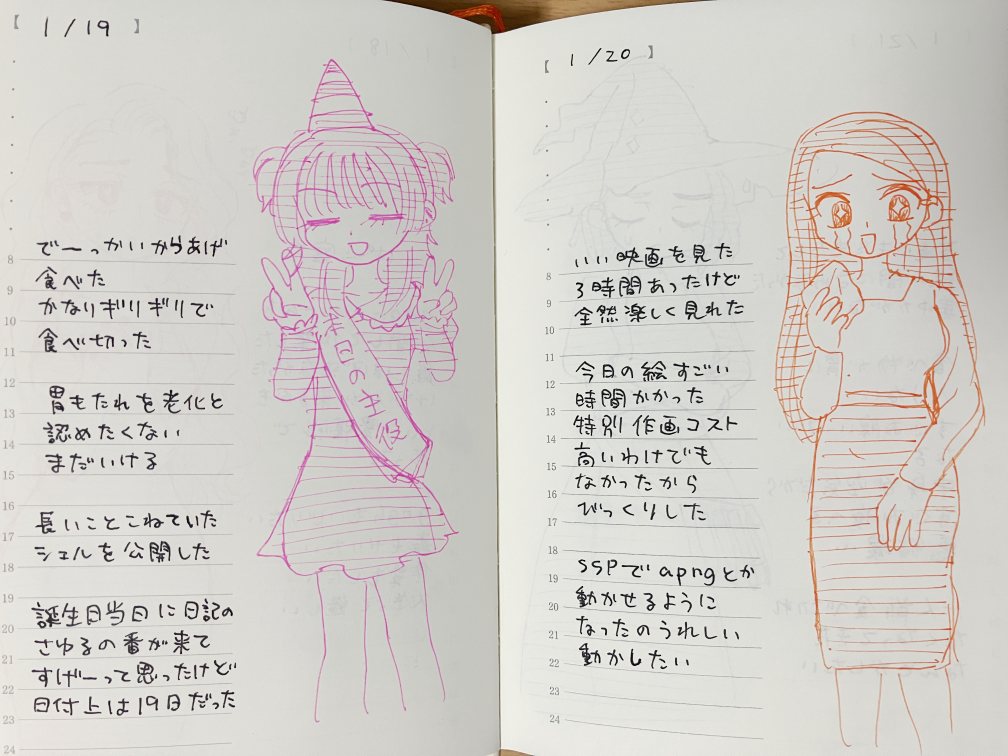 【 1/19 】
でーっかいからあげ
食べた
かなりギリギリで
食べ切った
胃もたれを老化と
認めたくない
まだいける
長いことこねていた
シェルを公開した
誕生日当日に日記の
さゆるの番が来て
すげーって思ったけど
日付上は19日だった
8
9
10
11
12
13
14
15
16
17
18
19
20
21
22
23
24
本日の主役
【 1/20 】
いい映画を見た
3時間あったけど
全然楽しく見れた
今日の絵すごい
時間かかった
特別作画コスト
高いわけでも
なかったから
びっくりした
SSPでapngとか
動かせるように
なったのうれしい
動かしたい
8
9
10
11
12
13
14
15
16
17
18
19
20
21
22
23
24